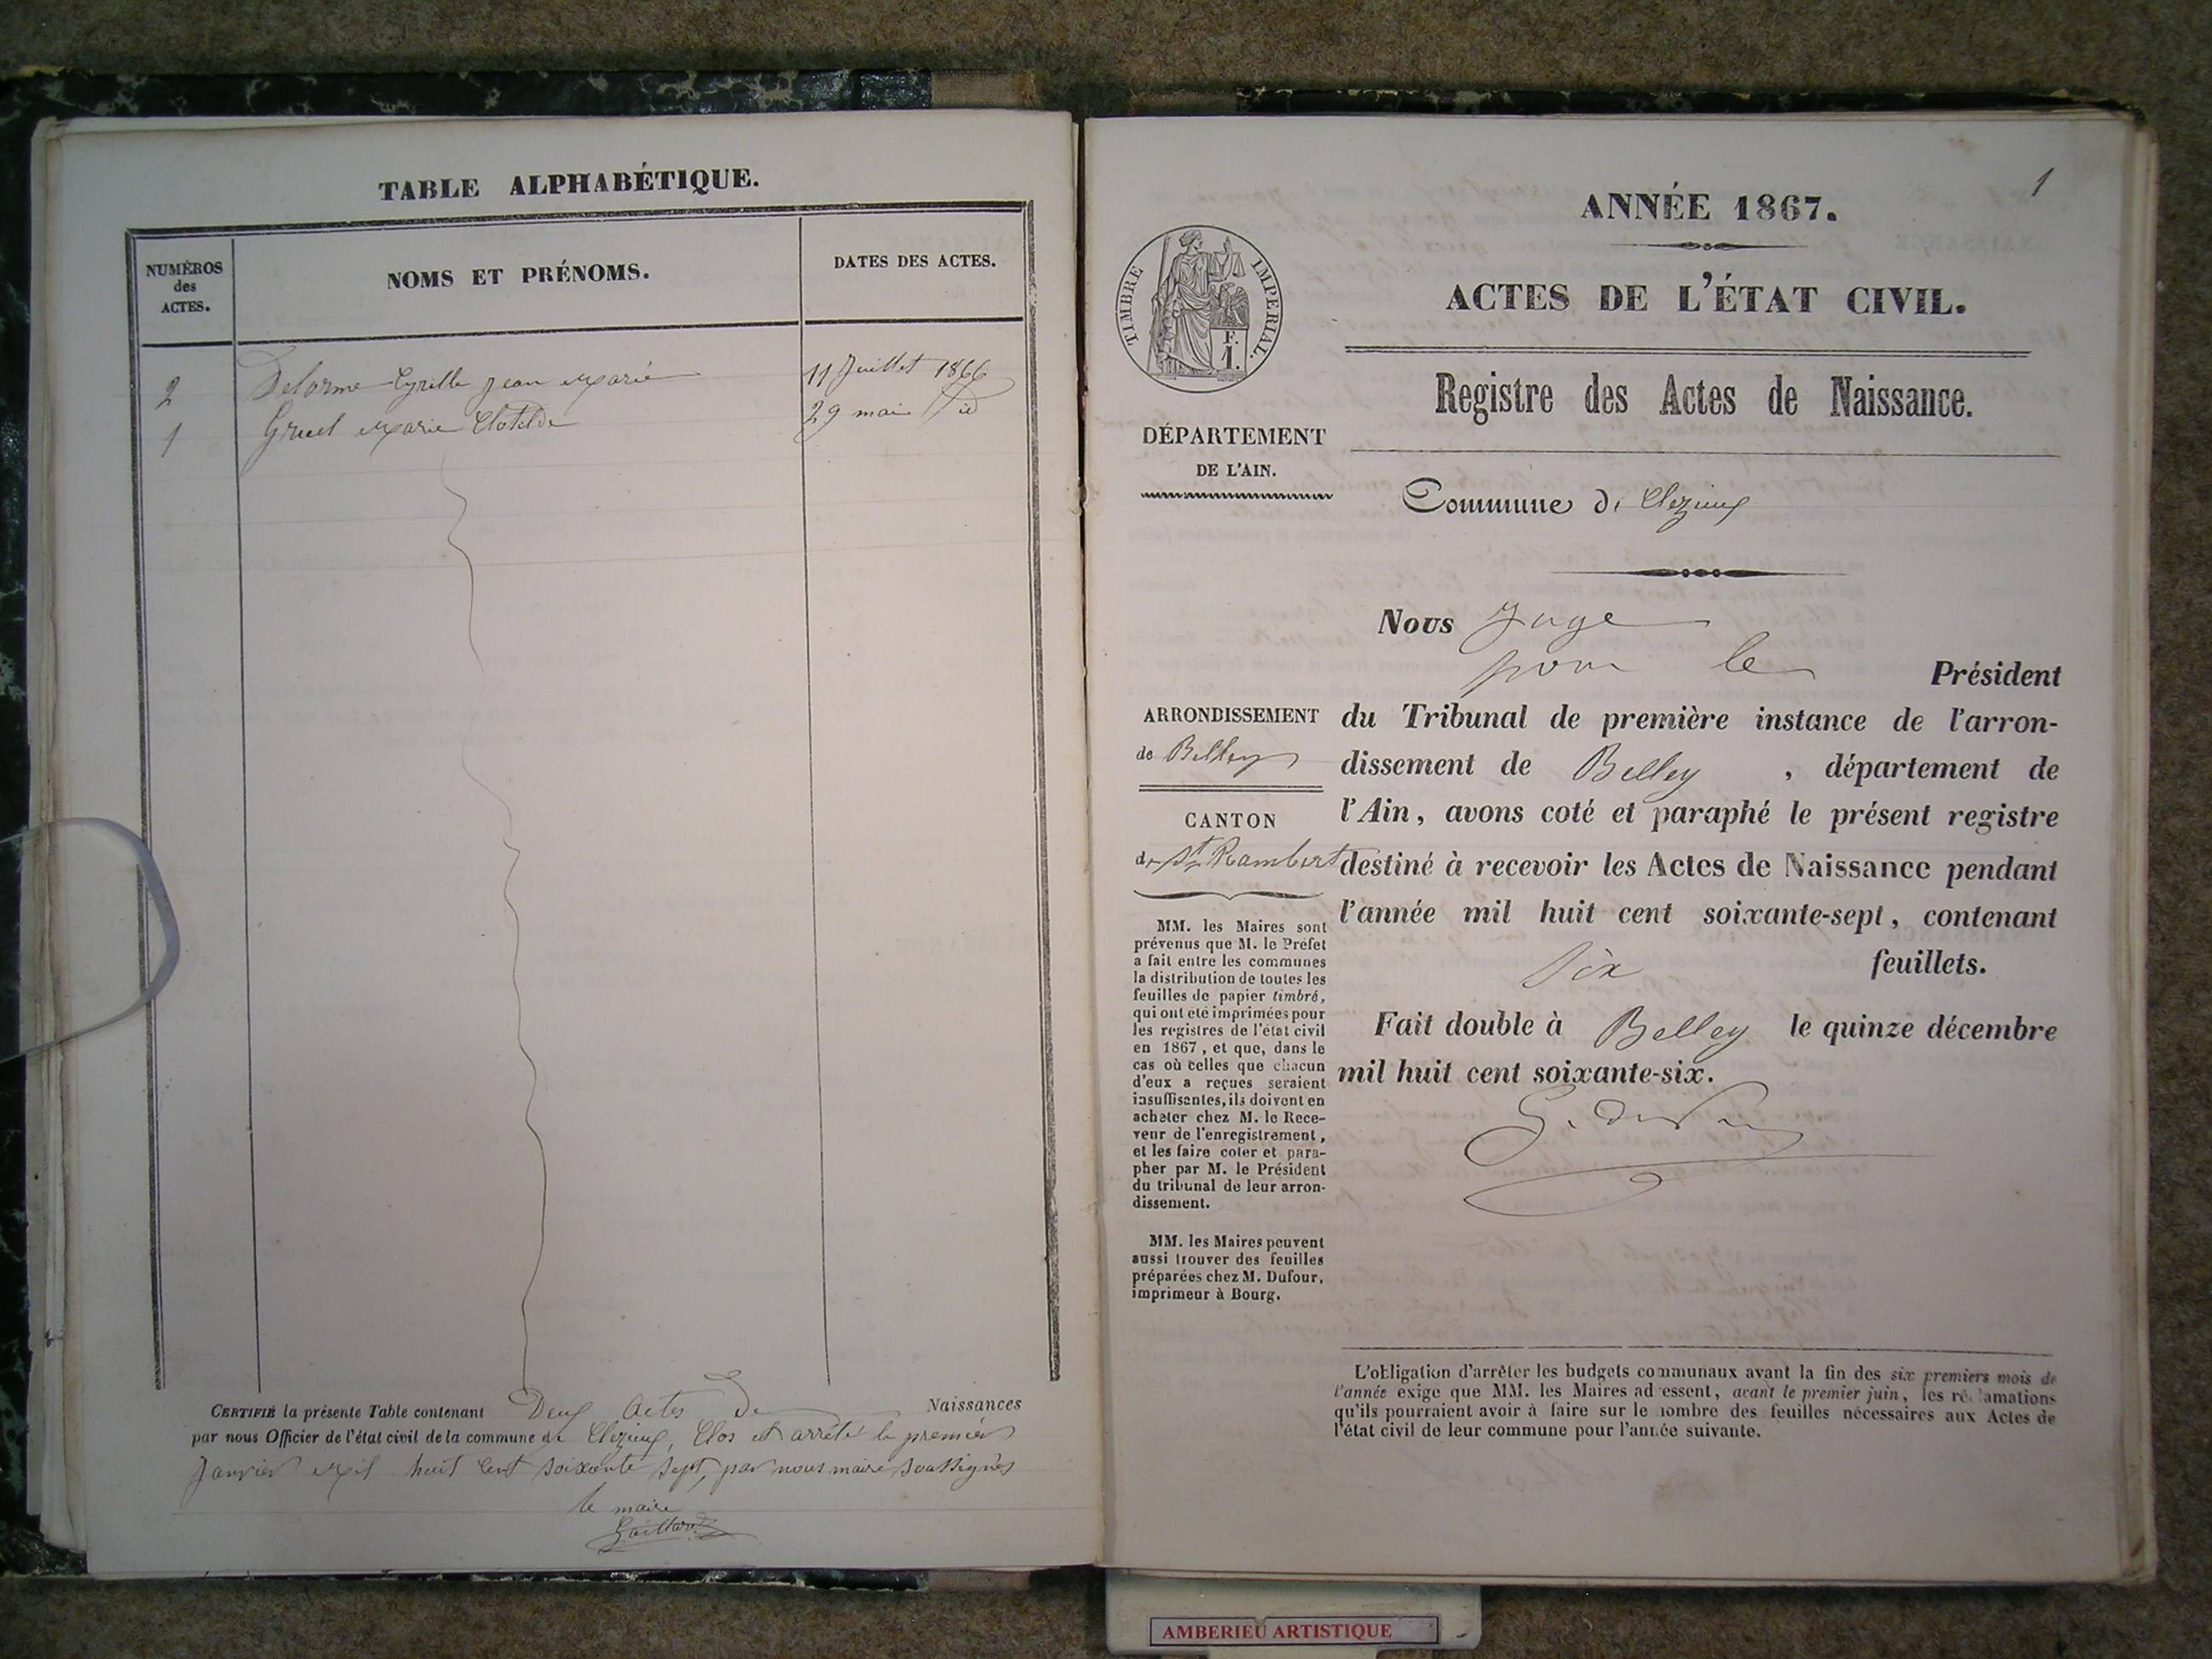 TABLE ALPHABÉTIQUE.
NUMÉROS
des
ACTES.
NOMS ET PRÉNOMS.
DATES DES ACTES.
2 Delorme Cyrille Jean Marie 11 Juillet 1866
1 Gruel Marie Clotilde 29 mai id
CERTIFIÉ la présente Table contenant Deux actes De Naissances
par nous Officier de l'état civil de la commune de Clézieux, Clos et arrêté le premier
Janvier Mil huit cent soixante sept, par nous maire soussignés
le maire
Gaillard
1
ANNÉE 1867.
ACTES DE L'ÉTAT CIVIL.
Registre des Actes de Naissance.
TIMBRE IMPÉRIAL.
F.
1.
DÉPARTEMENT
DE L'AIN.
Commune de Clézieux
ARRONDISSEMENT
de Belley
CANTON
de St Rambert
MM. les Maires sont
prévenus que M. le Préfet
a fait entre les communes
la distribution de toutes les
feuilles de papier timbré,
qui ont été imprimées pour
les registres de l'état civil
en 1867, et que, dans le
cas où celles que chacun
d'eux a reçues seraient
insuffisantes, ils doivent en
acheter chez M. le Rece-
veur de l'enregistrement,
et les faire coter et para-
pher par M. le Président
du tribunal de leur arron-
dissement.
MM. les Maires peuvent
aussi trouver des feuilles
préparées chez M. Dufour,
imprimeur à Bourg.
Nous Juge
pour le Président
du Tribunal de première instance de l'arron-
dissement de Belley , département de
l'Ain, avons coté et paraphé le présent registre
destiné à recevoir les Actes de Naissance pendant
l'année mil huit cent soixante-sept, contenant
six feuillets.
Fait double à Belley le quinze décembre
mil huit cent soixante-six.
L'obligation d'arrêter les budgets communaux avant la fin des six premiers mois de
l'année exige que MM. les Maires adressent, avant le premier juin, les réclamations
qu'ils pourraient avoir à faire sur le nombre des feuilles nécessaires aux Actes de
l'état civil de leur commune pour l'année suivante.
AMBERIEU ARTISTIQUE